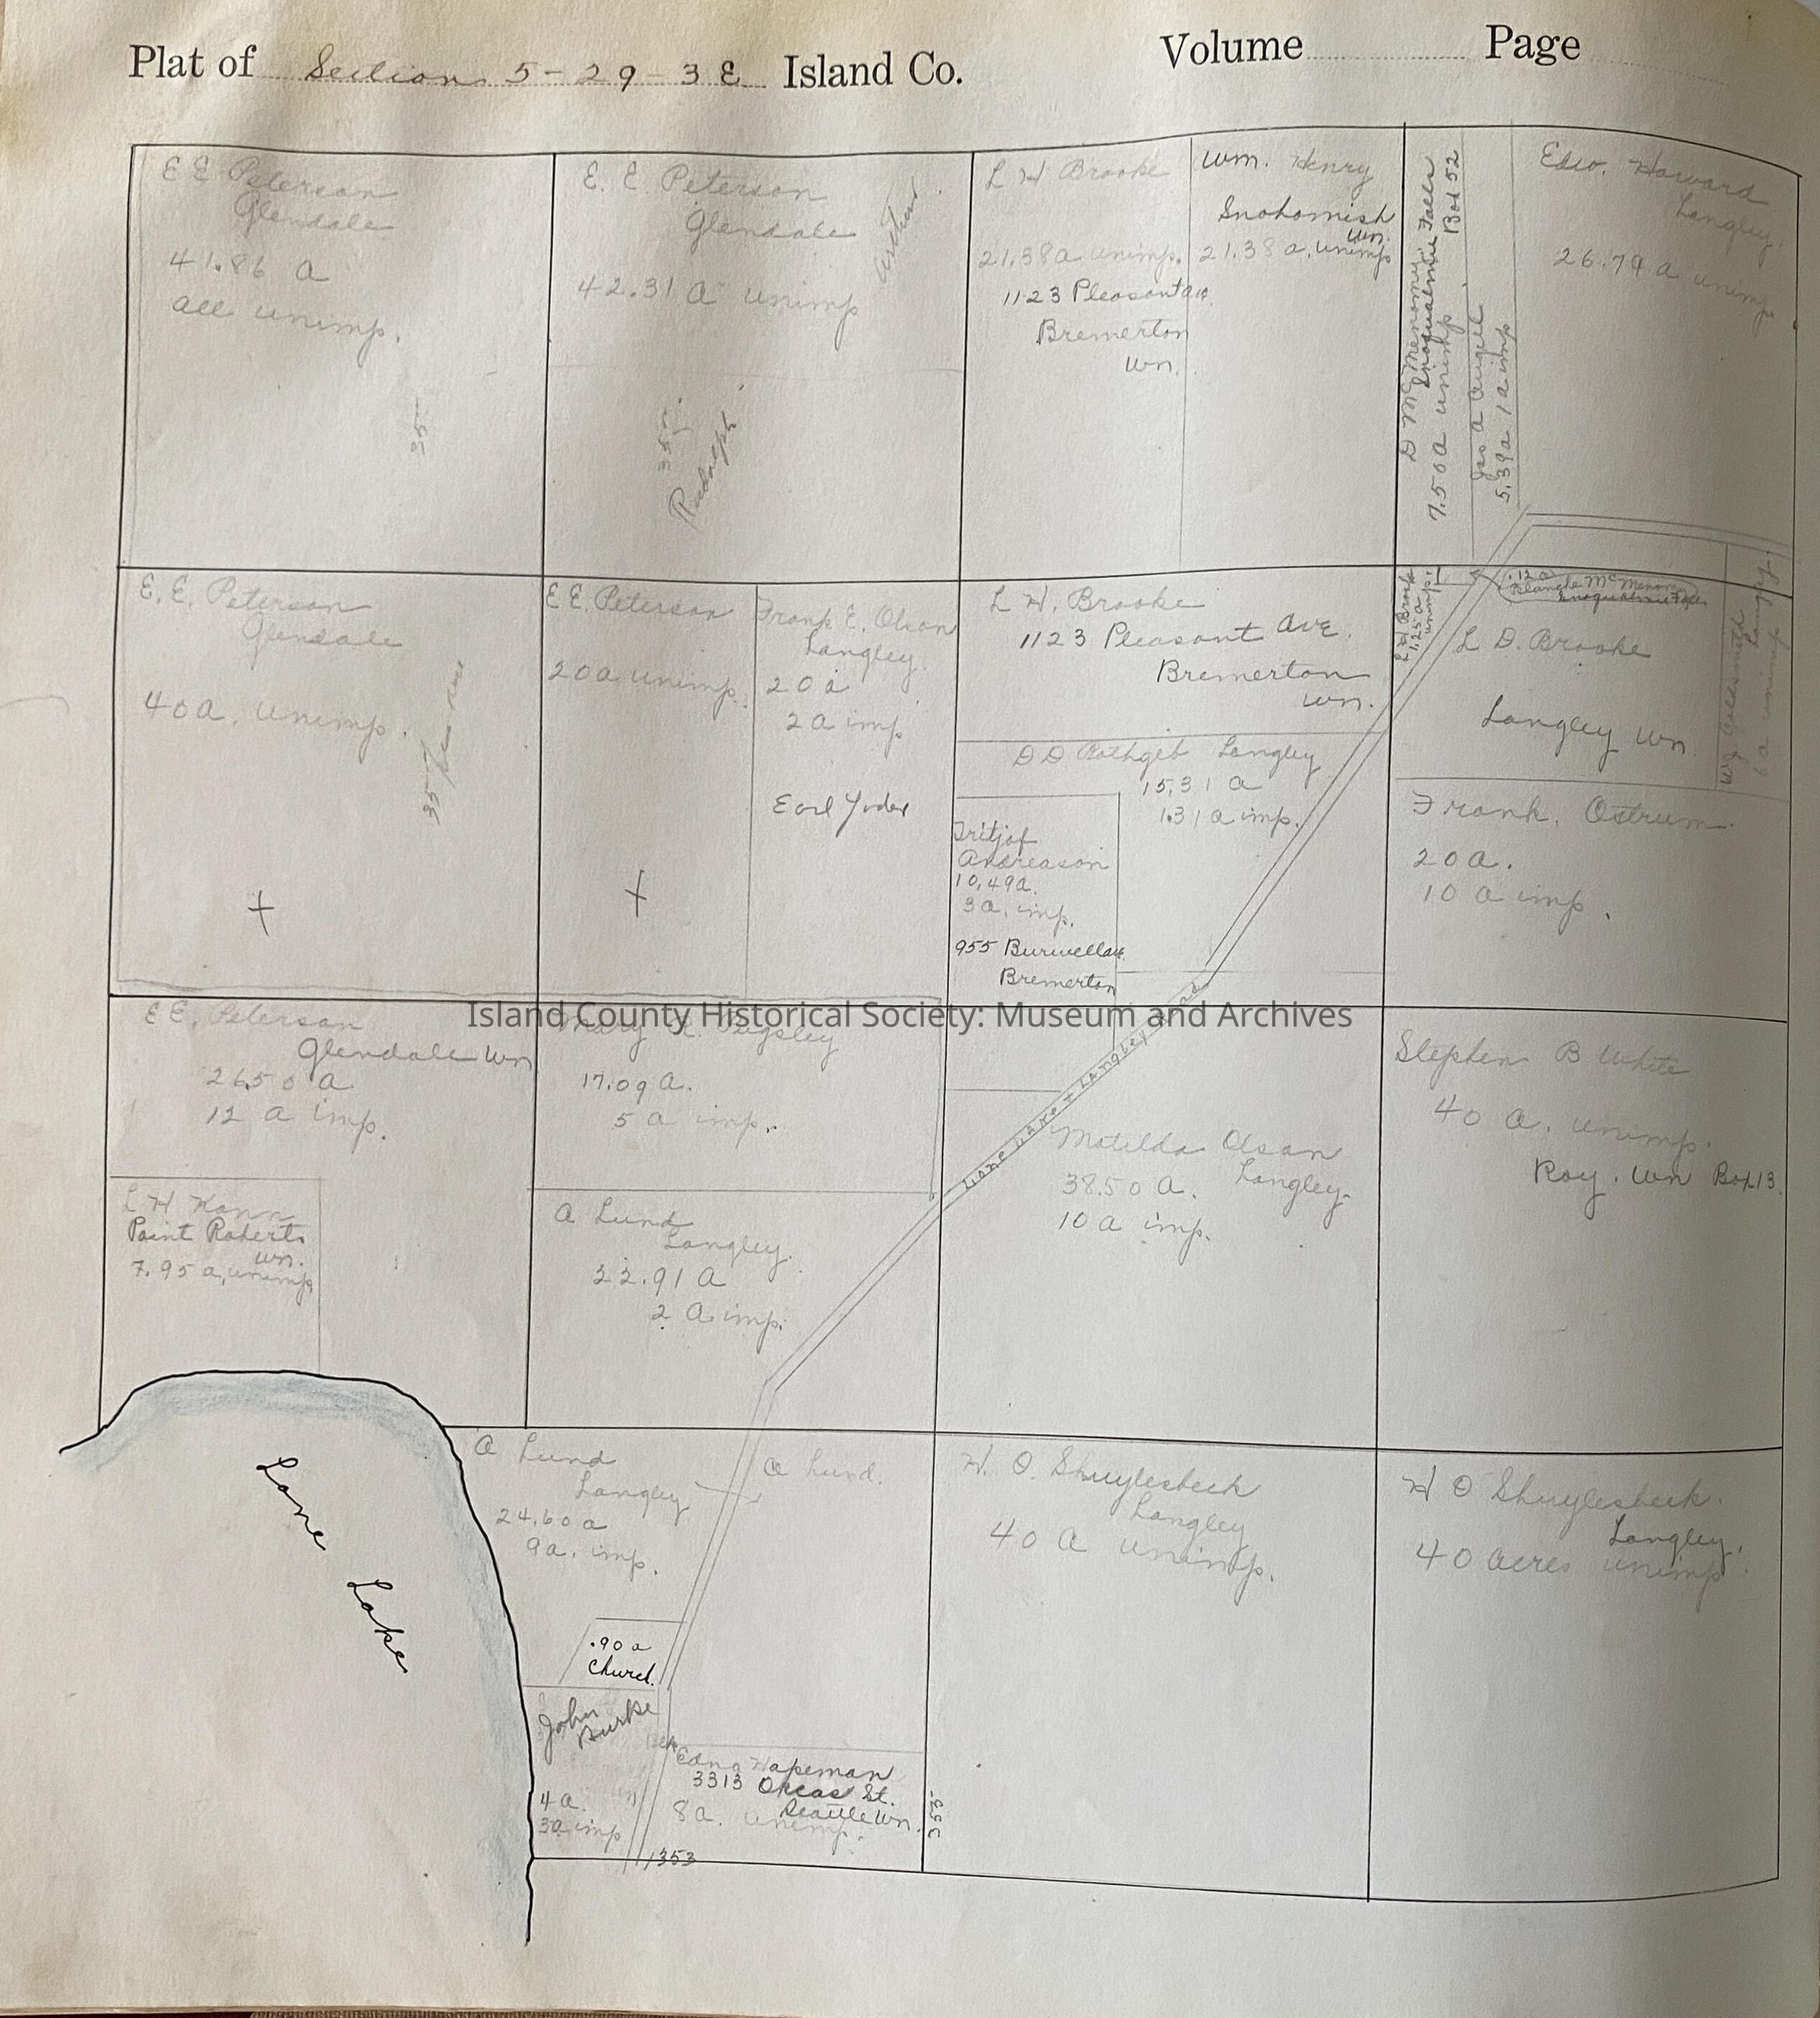 Plat of Section 5-29-3 E Island Co. Volume Page
E E Peterson
Glendale
41.86 a
all unimp.
35
E. E Peterson
Glendale
42.31 a unimp
35
Rudolph
L H Brooke
21.38a unimp.
1123 Pleasant ave
Bremerton
Wn.
Wm. Henry
Snohomish
Wn.
21.38 a. unimp
D McMenomy
Snoqualmie Falls
Box 52
7.50a unimp
Jas a Angell
5.39a 1a imp
Edw. Howard
Langley
26.79 a unimp.
E. E. Peterson
Glendale
40a. unimp.
35
E E. Peterson
20a unimp.
Frank E. Olson
Langley.
20a
2a imp
Earl Yoder
L. H. Brooke
1123 Pleasant Ave.
Bremerton
Wn.
D D Rothgeb Langley
15.31 a
1.31 a imp.
Fritjof
Andreason
10.49a.
3a. imp.
955 Burwell ave.
Bremerton
L H Brooke
1.25 a
unimp.
.12 a
Blanche McMenomy
Snoqualmie Falls
L D. Brooke
Langley Wn
W J Goldsmith
Langley.
6a unimp
Frank. Ostrum
20a.
10 a imp.
E E. Peterson
Glendale Wn
26.50 a
12 a imp.
L H Hann
Point Roberts
Wn.
7.95 a, unimp
Mary R. Pugsley
17.09 a.
5 a imp.
A Lund
Langley.
22.91 a
2 a imp.
Lone Lake & Langley Rd
Matilda Olson
Langley.
38.50 a.
10 a imp.
Stephen B White
40 a. unimp.
Roy. Wn Box 13
Lone Lake
A Lund
Langley
24.60 a
9a. imp.
A Lund.
.90 a
Church.
John
Burke
4a.
3a imp
Edna Hapeman
3313 Orcas St.
Seattle Wn.
8a. unimp.
353
355
H. O. Shuylesbeck
Langley
40 a unimp.
H O Shuylesbeck.
Langley.
40 acres unimp
Island County Historical Society: Museum and Archives